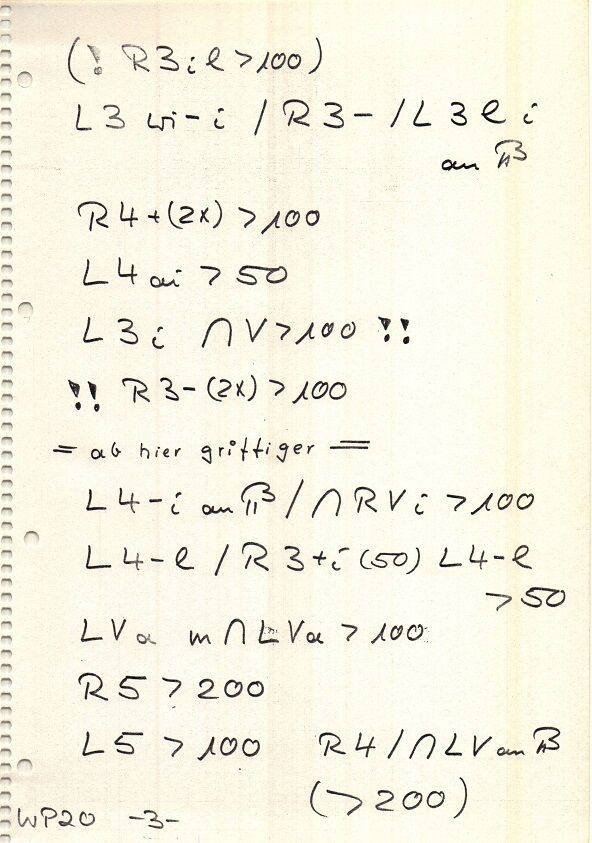 (! R3il > 100)
L3 wi-i / R3- / L3l i
an
R4+(2x) > 100
L4ai > 50
L3i ∩V > 100 !!
!! R3-(2x) > 100
= ab hier griffiger =
L4-i an / ∩RVi > 100
L4-l / R3+i (50) L4-l
> 50
LVa m∩LVa > 100
R5 > 200
L5 > 100 R4/∩LV an
(> 200)
WP20 -3-